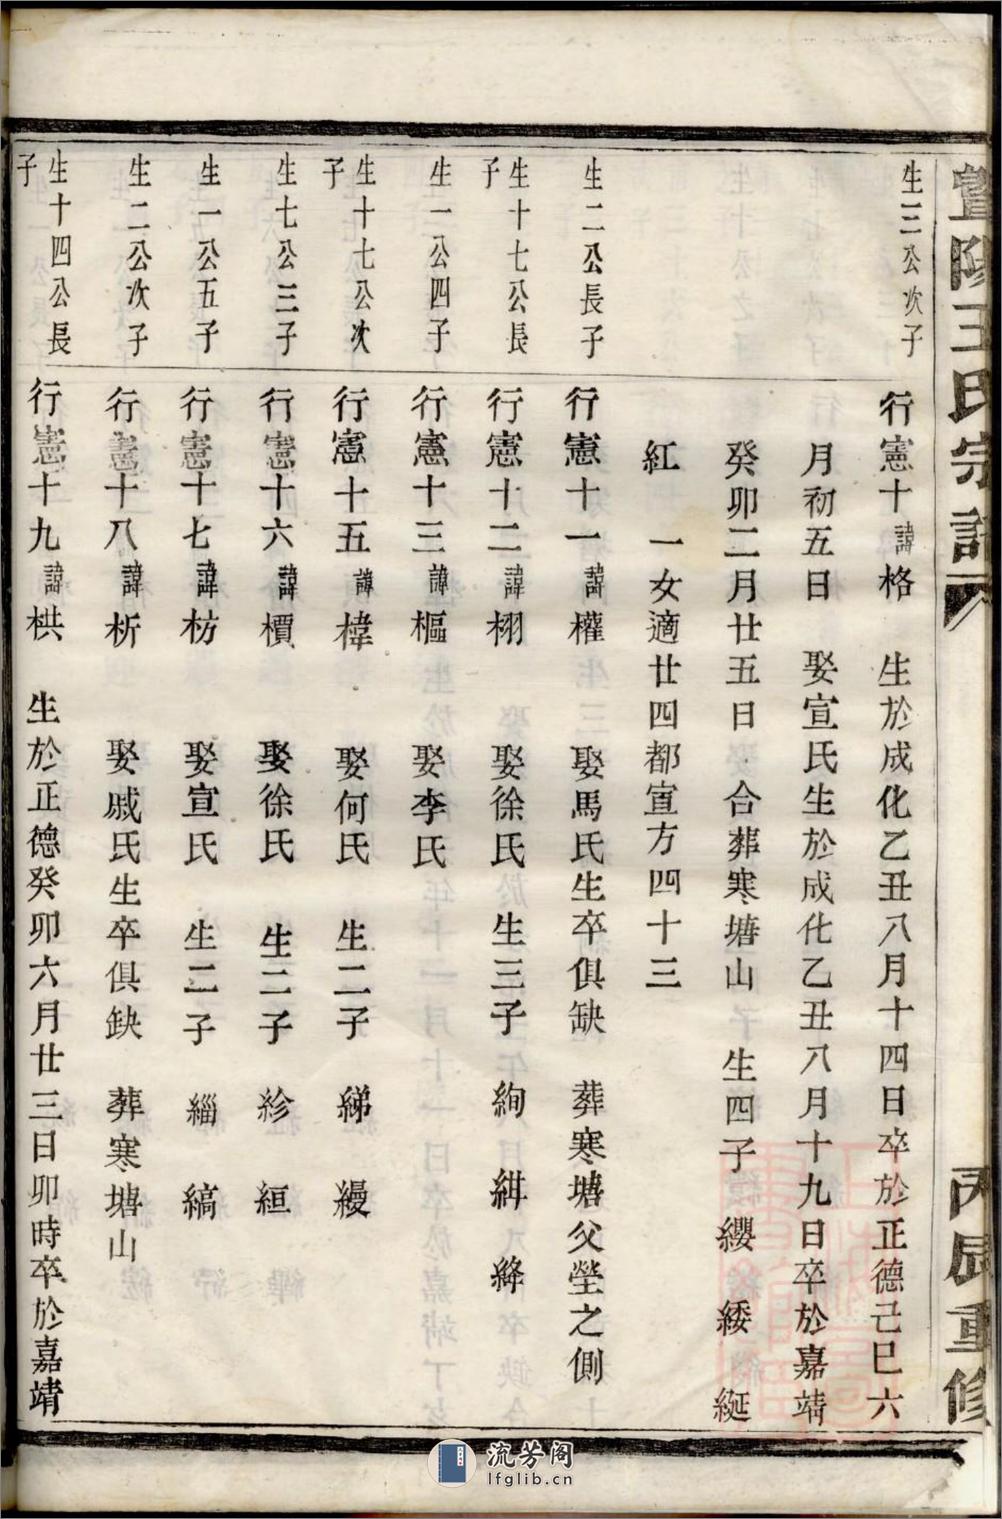 暨陽王氏宗譜
丙辰重修
生三公次子
行憲十諱格 生於成化乙丑八月十四日卒於正德己巳六
月初五日 娶宣氏生於成化乙丑八月十九日卒於嘉靖
癸卯二月廿五日 合葬寒塘山 生四子 纓 綏 綎
紅 一女適廿四都宣方四十三
生二公長子
行憲十一諱權 娶馬氏生卒俱缺 葬寒塘父塋之側
生十七公長
子
行憲十二諱栩 娶徐氏 生三子 絢 紺 絳
生一公四子
行憲十三諱樞 娶李氏
生十七公次
子
行憲十五諱椲 娶何氏 生二子 綈 縵
生七公三子
行憲十六諱檟 娶徐氏 生二子 紾 絙
生一公五子
行憲十七諱枋 娶宣氏 生二子 緇 縞
生二公次子
行憲十八諱析 娶戚氏生卒俱缺 葬寒塘山
生十四公長
子
行憲十九諱栱 生於正德癸卯六月廿三日卯時卒於嘉靖
流芳阁
lfglib.cn